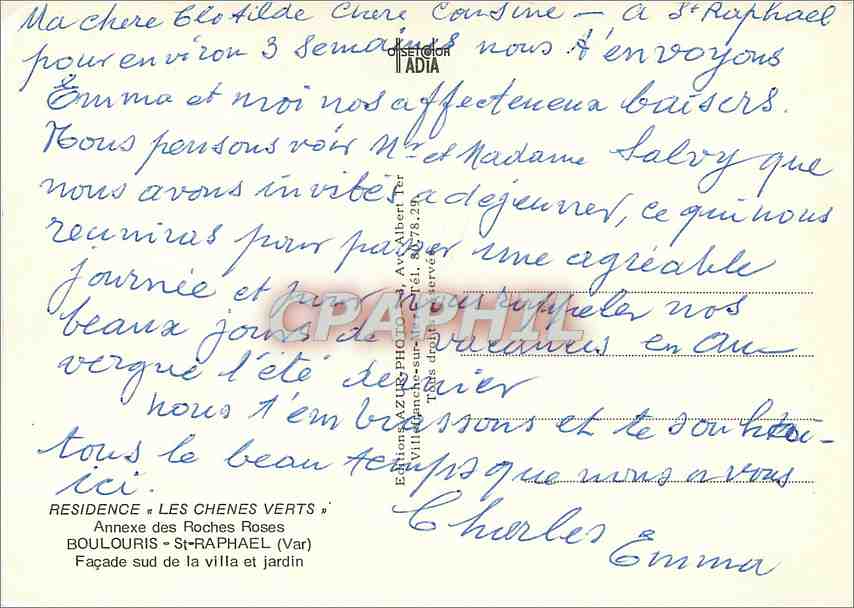 Ma chere Clotilde Chere Cousine - A St Raphael
pour environ 3 semaines nous t'envoyons
Emma et moi nos affectueux baisers.
Nous pensons voir Mr et Madame Salvy que
nous avons invités a dejeuner, ce qui nous
reuniras pour passer une agréable
journée et pour nous rappeler nos
beaux jours de vacances en Au-
vergne l'été dernier
nous t'embrassons et te souhai-
tons le beau temps que nous avons
ici.
Charles
Emma
ADIA
Editions AZUR-PHOTO Av. Albert 1er
Villefranche-sur-Mer Tél. 80.78.29
Tous droits réservés
CPAPHIL
RESIDENCE « LES CHENES VERTS »
Annexe des Roches Roses
BOULOURIS - St-RAPHAEL (Var)
Façade sud de la villa et jardin